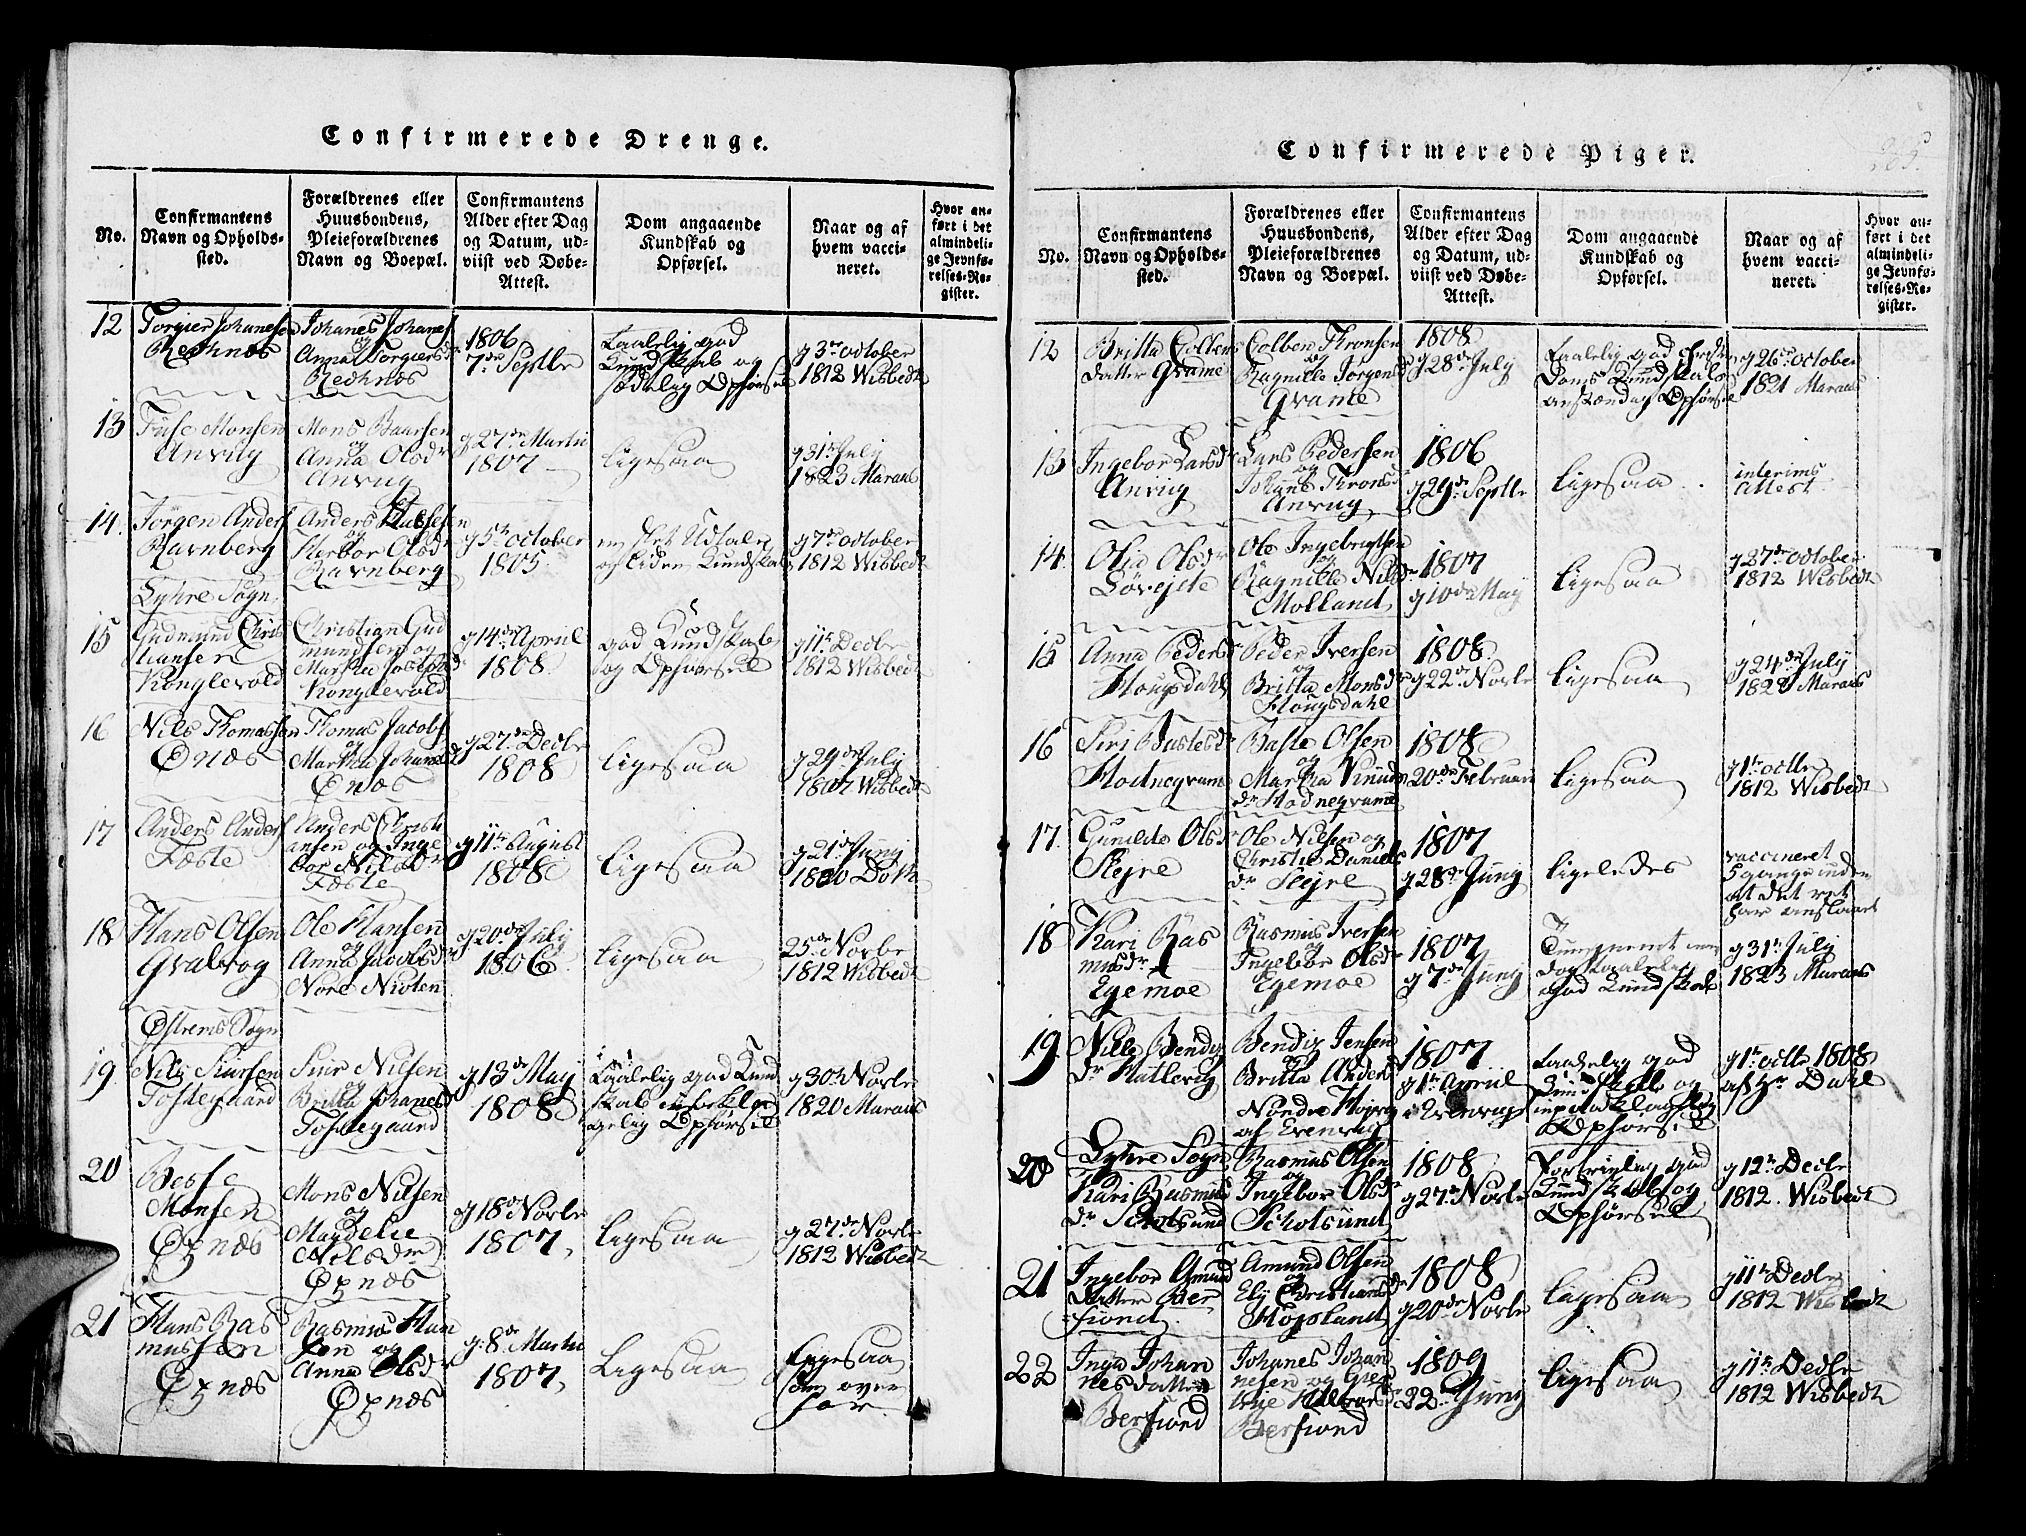 Confirmerede Drenge.
No.
Confirmantens
Navn og Opholds-
sted.
Forældrenes eller
Huusbondens,
Pleieforældrenes
Navn og Boepæl.
Confirmantens
Alder efter Dag
og Datum, ud-
viist ved Døbe-
Attest.
Dom angaaende
Kundskab og
Opførsel.
Naar og af
hvem vacci-
neret.
Hvor an-
ført i det
almindeli-
ge Jevnfø-
relses-Re-
gister.
12
Torgier Johanesen
Rechnæs
Johanes Johanes
og
Anna Torgiersdr
Rechnæs
1806
7de Septbr
Taalelig god
Kundskab og
sædelig Opførsel
g 3de october
1812 Wisbedt
13
Fuse Monsen
Anvug
Mons Baarsen
og
Anna Olsdr
Anvug
g 27de Martii
1807
ligesaa
g 31te July
1823 Maraus
14.
Jörgen Anders
Ravnberg
Anders
og
Olsdr
Ravnberg
g 5te october
1805
og liden Kundskab
g 7de october
1812 Wisbedt
Lyhre Sogn.
15
Gudmund Chris
tiansen
Konglevold
Christian Gud
mundsen og
Martha
Konglevold
g 14de April
1808
god Kundskab
og Opførsel
g 11te Decbr
1812 Wisbedt
16
Nils Thomassen
Thomas Jacobs
og
Martha Johanes
g 27de Decbr
1808
ligesaa
g 29de July
1807 Wisbedt
17
Anders Anders
Fæste
Anders Christi
ansen og Inge
bor Nilsdr
Fæste
g 11te August
1808
ligesaa
g 21de Juny
18
Hans Olsen
Qvalvog
Ole Hansen
og
Anna Jacobsdr
Nore
g 20de July
1806
ligesaa
25de Novbr
1812 Wisbedt
Østrems Sogn
19
Nils
Tostegaard
Nilsen
og
Britta Johanes
Tostegaard
g 13de May
1808
Taalelig god Kund
skab
gelig Opførsel
g 30te Novbr
1820 Maraus
20
Monsen
Øxnæs
Mons Nilsen
og
Magdelie
Nilsdr
Øxnæs
g 18de Novbr
1807,
ligesaa
g 27de Novbr
1812 Wisbedt
21
Hans Ras
mussen
Øxnæs
Rasmus Han
sen og
Anna Olsdr
Øxnæs
g. 8de Martii
1807,
Ligesaa
Ligesaa
som over
for
Confirmerede Piger.
265.
No.
Confirmantens
Navn og Opholds-
sted.
Forældrenes eller
Huusbondens,
Pleieforældrenes
Navn og Boepæl.
Confirmantens
Alder efter Dag
og Datum, ud-
viist ved Døbe-
Attest.
Dom angaaende
Kundskab og
Opførsel.
Naar og af
hvem vacci-
neret.
Hvor an-
ført i det
almindeli-
ge Jevnfø-
relses-Re-
gister.
12
Britta Colbens
datter Grame
Colben Thronsen
og
Ragnille Jorgens
Grame
1808
g 28de July
Taalelig god christen
doms Kundskab
anstændig Opførsel
g 26de october
1821 Maraus
13
Ingebor Larsdr
Anvug
Lars Pedersen
og
Thronsd
Anvug
1806
g 29de Septbr
ligesaa
interims
attest
14.
Olia Olsdr
Ole Ingebrigtsen
og
Ragnille Nilsdr
Molland
1807
g 10de May
ligesaa
g 27de october
1812 Wisbedt
15
Anna Peders
Hougsdahl
Peder Iversen
og
Britta Monsdr
Hougsdahl
1808
g 22de Novbr
ligesaa
g 24de July
Maraus
16
Siri Bastesdr
Hodnegram
Baste Olsen
og
Martha
dr Hodnegrame
1808
20de Februari
ligesaa
g 1te octbr
1812 Wisbedt
17.
Gunilde Olsd
Slejre
Ole Nilsen og
Christie Daniels
dr Slejre
1807
g 28de Juny
ligeledes
vaccineret
5 gange uden
at det ret
har anslaaet
18
Kari Ras
musdr
Egemoe
Rasmus Iversen
og
Ingebor Olsdr
Egemoe
1807
g 7de Juny
Tungnemt men
dog taalelig
god Kundskab
g 31te July
1823 Maraus
19.
Nille Bendix
dr Matlevig
Bendix Jensen
og
Britta Andersd
Nordre
af Evenvig
1807
g 1te April
i Evenvig
Taalelig god
Kundskab og
upaaklagelig
Opførsel
g 1te octbr 1808
af Hr Dahl
20
Lyhre Sogn.
Kari Rasmus
dr Scholsund
Rasmus Olsen
og
Ingebor Olsdr
Scholsund
1808
g 27de Novbr
Fortrinlig god
Kundskab og
Opførsel
g 12te Decbr
1812. Wisbedt
21
Ingebor Amund
datter Ber
fiord
Amund Olsen
og
Ely Christiansdr
1808
g 20de Novbr
ligesaa
g 11te Decbr
1812 Wisbedt
22
Inga Johan
nesdatter
Berfiord
Johanes Johan
nesen og
Berfiord
1809
22de Juny
ligesaa
g 11te Decbr
1812 Wisbedt